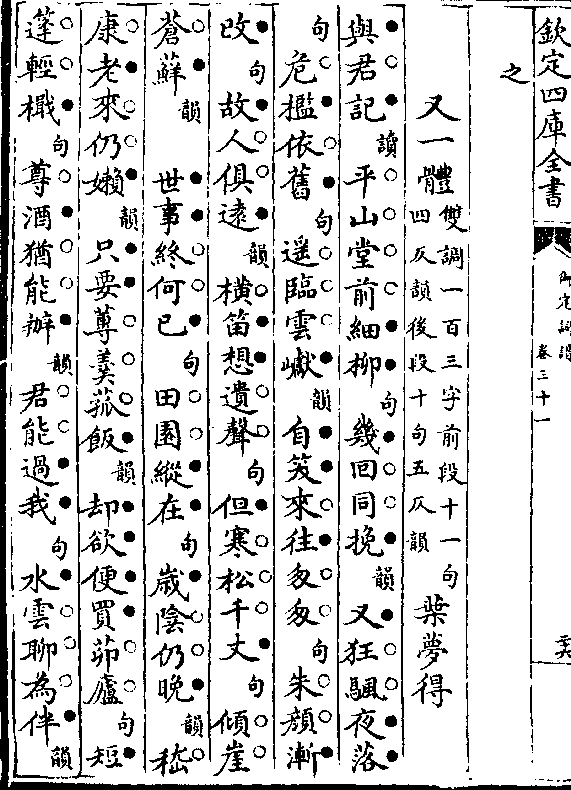 欽定四庫全書
御定詞譜
卷三十一
之
又一體
雙調一百三字前段十一句
四仄韻後段十句五仄韻
葉夢得
與君記讀平山堂前細柳句幾回同挽韻又狂颿夜落
句危檻依舊句遥臨雲巘韻自笑來往匆匆句朱顔漸
改句故人俱遠韻橫笛想遺聲句但寒松千丈句傾崖
蒼蘚韻 世事終何已句田園縱在句歲陰仍晚韻嵇
康老來仍嬾韻只要蓴羮菰飯韻却欲便買茆廬句短
篷輕檝句尊酒猶能辦韻君能過我句水雲聊為伴韻